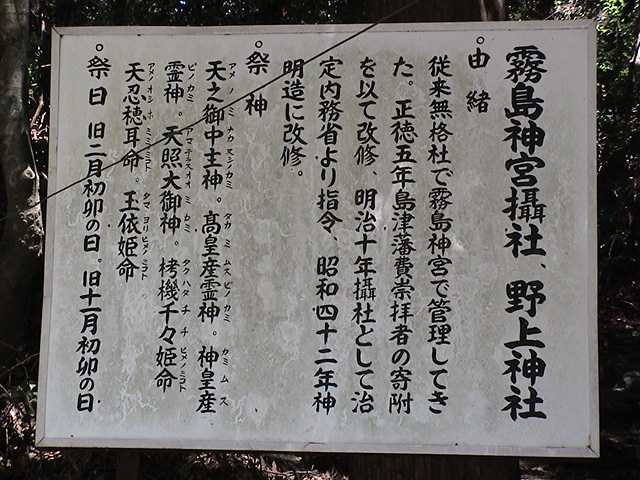 霧島神宮攝社、野上神社
。由緒
従来無格社で霧島神宮で管理してき
た。正徳五年島津藩費崇拝者の寄附
を以て改修、明治十年攝社として治
定内務省より指令、昭和四十二年神
明造に改修。
。祭神
天之御中主神。高皇産霊神。神皇産
アメノミナカヌシノカミ タカミムスビノカミ カミムス
霊神。天照大御神。栲機千々姫命
ビノカミ アマテラスオオミカミ タクハタチチヒメノミコト
天忍穂耳命。玉依姫命
アメオシホミミノミコト タマヨリヒメノミコト
。祭日 旧二月初卯の日。旧十一月初卯の日